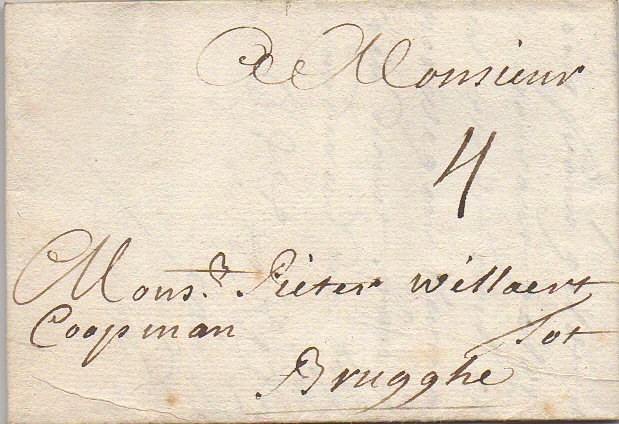 A Monsieur
4
Monsr. Pieter Willaert
Coopman tot
Brugghe